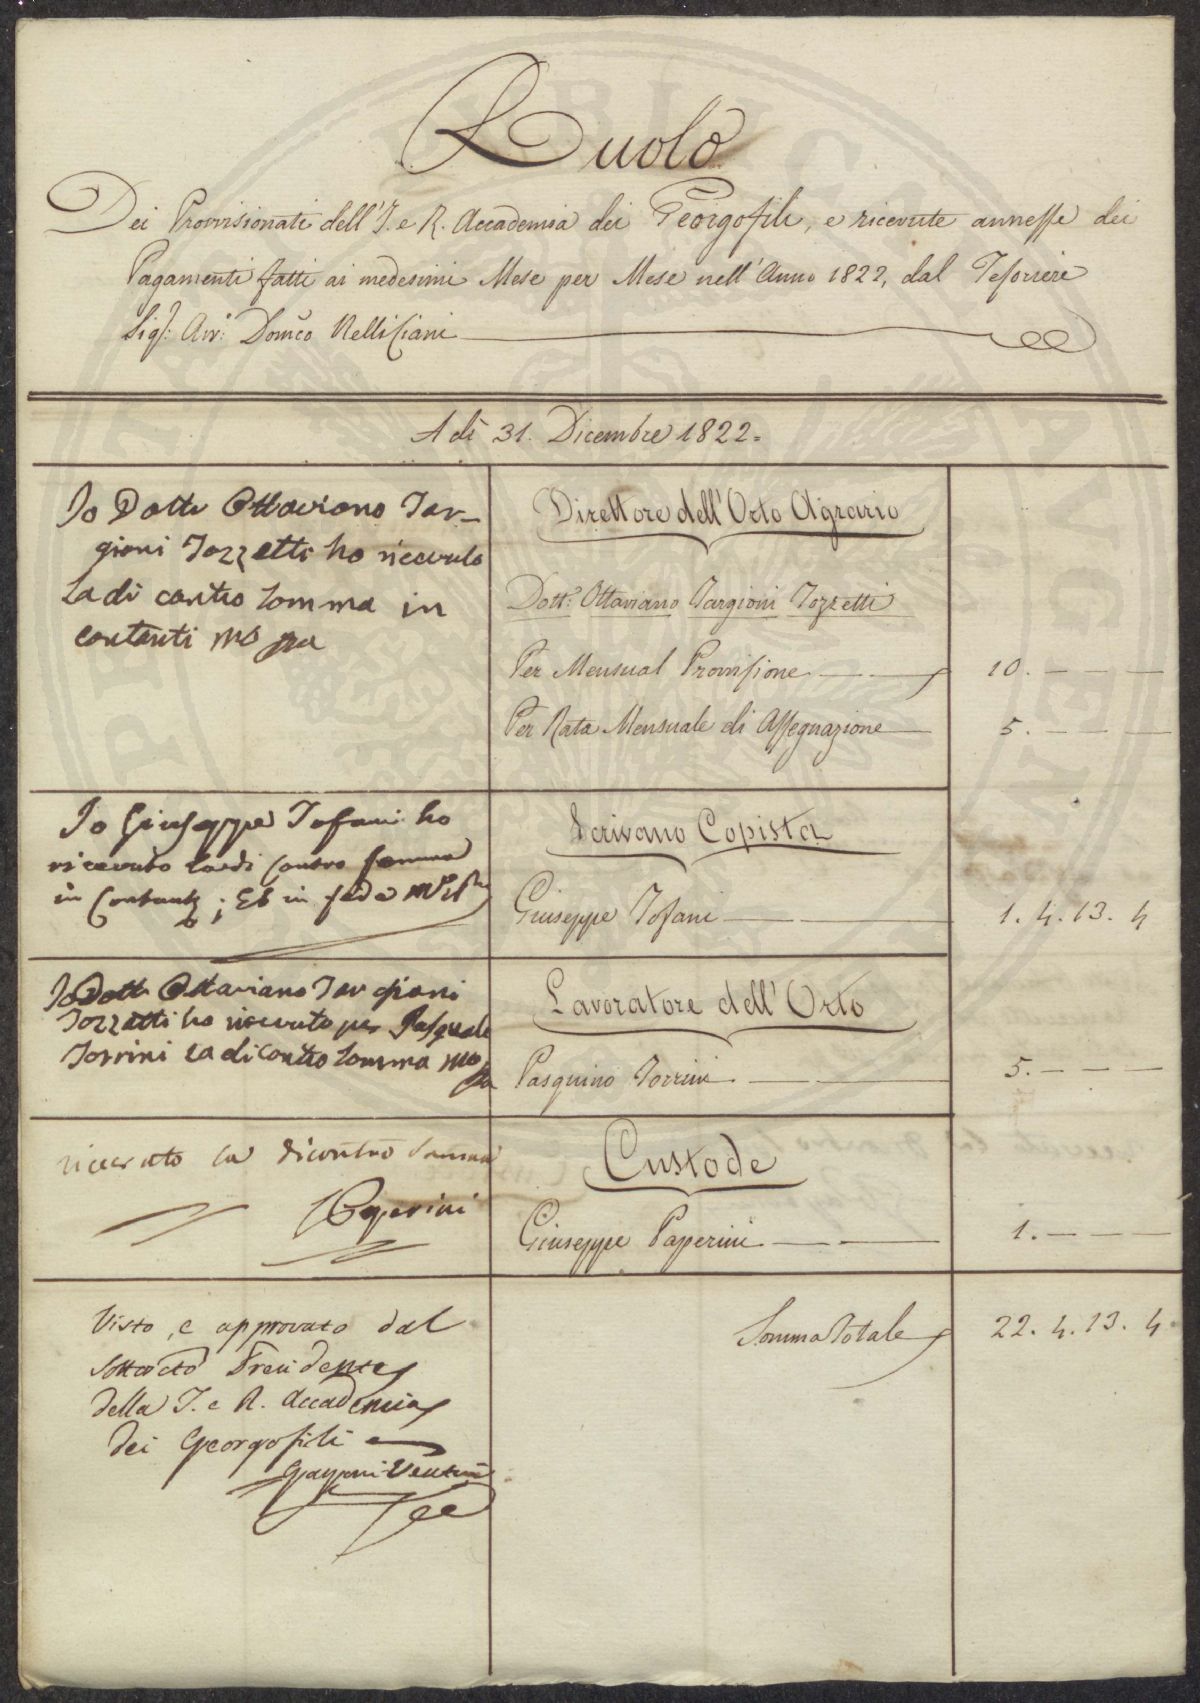 Ruolo
Dei Provvisionati dell' I. e R. Accademia dei Georgofili, e ricevute annesse dei
Pagamenti fatti ai medesimi Mese per Mese nell' Anno 1822, dal Tesoriere
Sigr: Avv: Domco Nelli Ciani
A dì 31. Dicembre 1822=
Io Dotte Ottaviano Tar-
gioni Tozzetti ho ricevuto
la di contro somma in
contanti mo ppa
Direttore dell'Orto Agrario
Dott: Ottaviano Targioni Tozzetti
Per Mensual Provvisione 10. — — —
Per Rata Mensuale di Assegnazione 5. — — —
Io Giuseppe Tofani ho
ricevuto la di contro somma
in Contanti; Ed in fede
Scrivano Copista
Giuseppe Tofani 1. 4. 13. 4
Io Dott Ottaviano Targioni
Tozzetti ho ricevuto per Pasquale
Torrini la di contro somma mo
ppa
Lavoratore dell'Orto
Pasquino Torrini 5. — — —
ricevuto la dicontro somma
Paperini
Custode
Giuseppe Paperini 1. — — —
Visto, e approvato dal
sottocto Presidente
della I. e R. Accademia
dei Georgofili
Somma Totale 22. 4. 13. 4